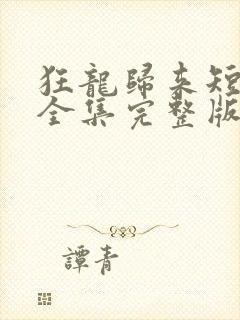 狂龍歸來短
全集完整版
譚青